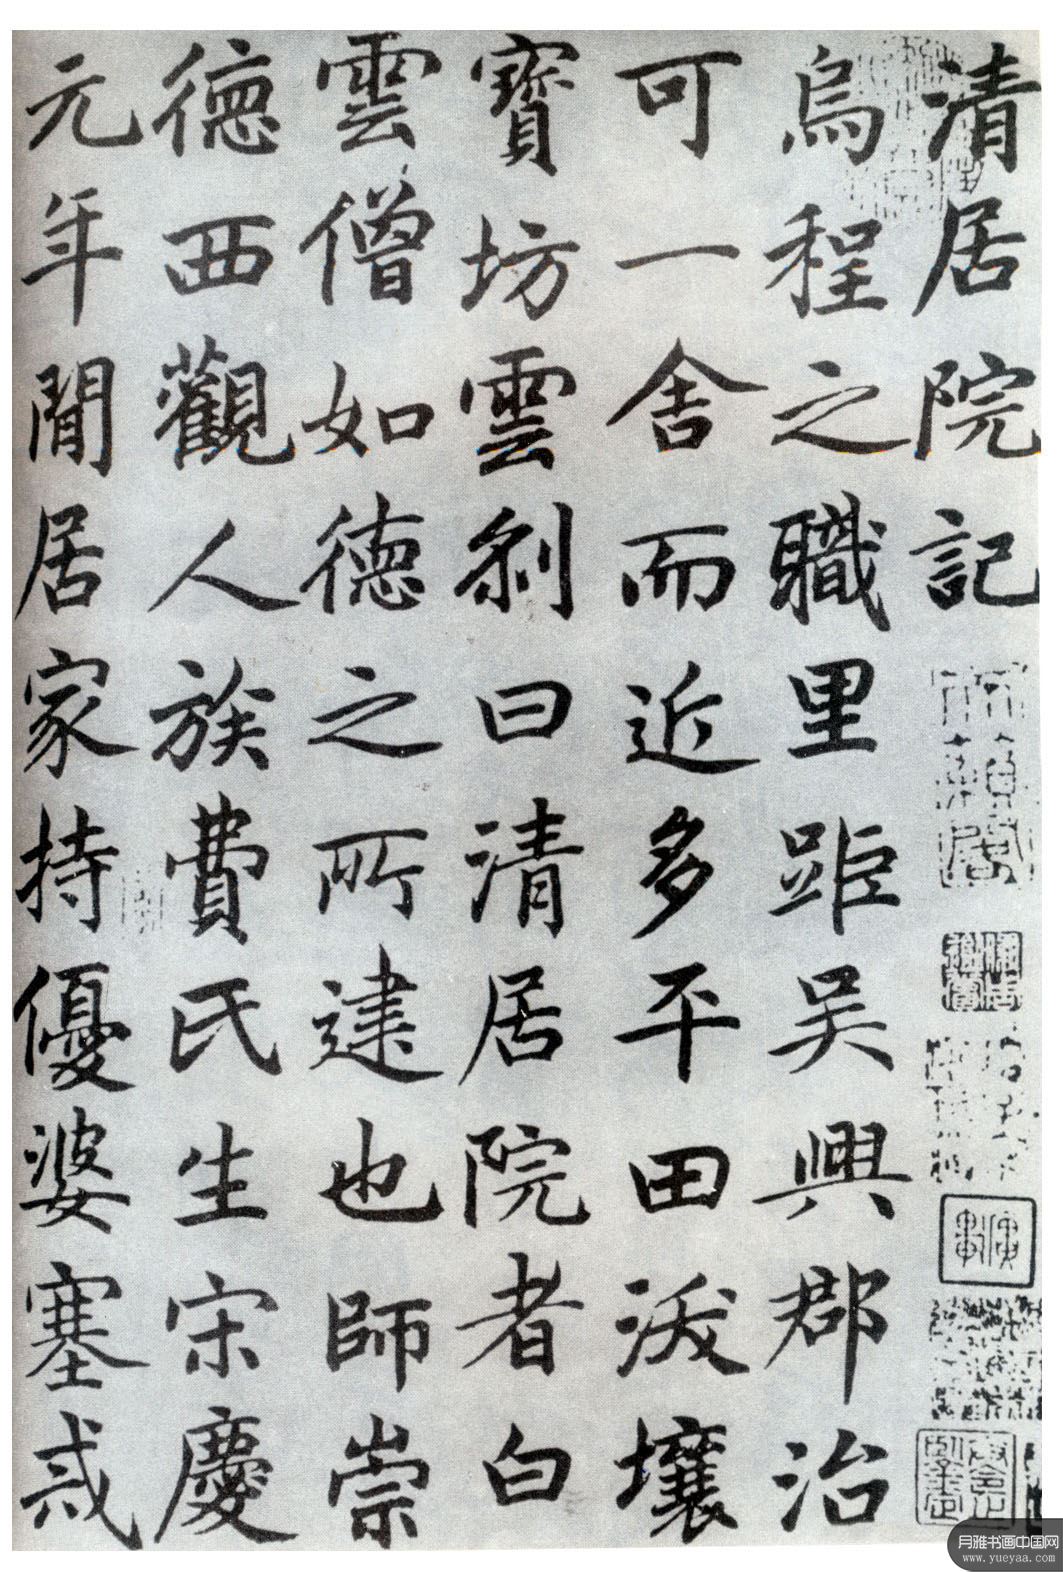 清居院記
烏程之職里距吳興郡治
可一舍而近多平田沃壤
寶坊雲剎曰清居院者白
雲僧如德之所建也師崇
德西觀人族費氏生宋慶
元年閒居家持優婆塞戒
月雅书画中国网
www.yueyaa.com